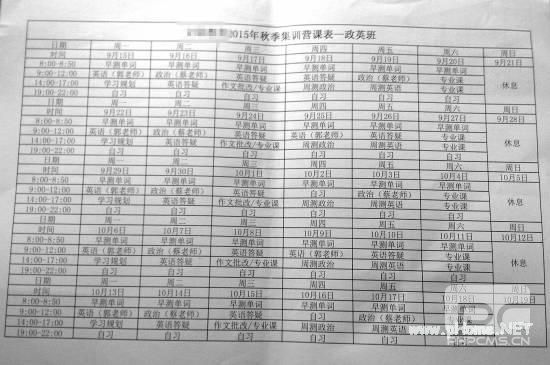 2015年秋季集训营课表—政英班
日期 周一 周二 周三 周四 周五 周六 周日
时间 9月15日 9月16日 9月17日 9月18日 9月19日 9月20日 9月21日
8:00-8:50 早测单词 早测单词 早测单词 早测单词 早测单词 早测单词
9:00-12:00 英语（郭老师） 政治（蔡老师） 英语答疑 英语答疑 政治（蔡老师） 专业课 休息
14:00-17:00 学习规划 英语答疑 作文批改/专业课 周测政治 周测英语 专业课
19:00-22:00 自习 自习 自习 自习 自习 自习
日期 周一 周二 周三 周四 周五 周六 周日
时间 9月22日 9月23日 9月24日 9月25日 9月26日 9月27日 9月28日
8:00-8:50 早测单词 早测单词 早测单词 早测单词 早测单词 早测单词
9:00-12:00 英语（郭老师） 政治（蔡老师） 英语答疑 专业课 休息
14:00-17:00 学习规划 英语答疑 作文批改/专业课 周测政治 周测英语 专业课
19:00-22:00 自习 自习 自习 自习 自习 自习
日期 周一 周二 周三 周四 周五 周六 周日
时间 9月29日 9月30日 10月1日 10月2日 10月3日 10月4日 10月5日
8:00-8:50 早测单词 早测单词 早测单词 早测单词 早测单词 早测单词
9:00-12:00 英语（郭老师） 政治（蔡老师） 英语答疑 专业课 休息
14:00-17:00 学习规划 英语答疑 作文批改/专业课 周测政治 周测英语 专业课
19:00-22:00 自习 自习 自习 自习 自习 自习
日期 周一 周二 周三 周四 周五 周六 周日
时间 10月6日 10月7日 10月8日 10月9日 10月10日 10月11日 10月12日
8:00-8:50 早测单词 早测单词 早测单词 早测单词 早测单词 早测单词
9:00-12:00 英语（郭老师） 政治（蔡老师） 英语答疑 专业课 休息
14:00-17:00 学习规划 英语答疑 作文批改/专业课 周测政治 周测英语 专业课
19:00-22:00 自习 自习 自习 自习 自习 自习
日期 周一 周二 周三 周四 周五 周六 周日
时间 10月13日 10月14日 10月15日 10月16日 10月17日 10月18日 10月19日
8:00-8:50 早测单词 早测单词 早测单词 早测单词 早测单词 早测单词
9:00-12:00 英语（郭老师） 政治（蔡老师） 英语答疑 政治（蔡老师） 专业课
14:00-17:00 学习规划 英语答疑 作文批改/专业课 周测政治 周测英语 专业课
19:00-22:00 自习 自习 自习 自习 自习 自习